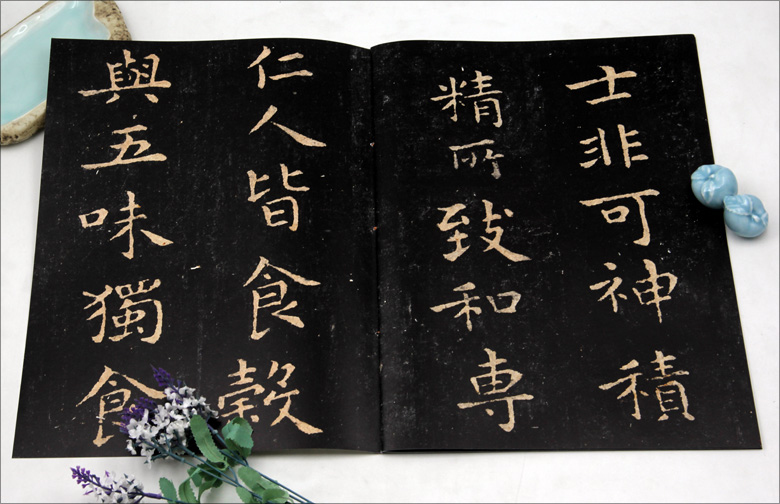 士非可神積
精所致和専
仁人皆食糓
與五味獨食